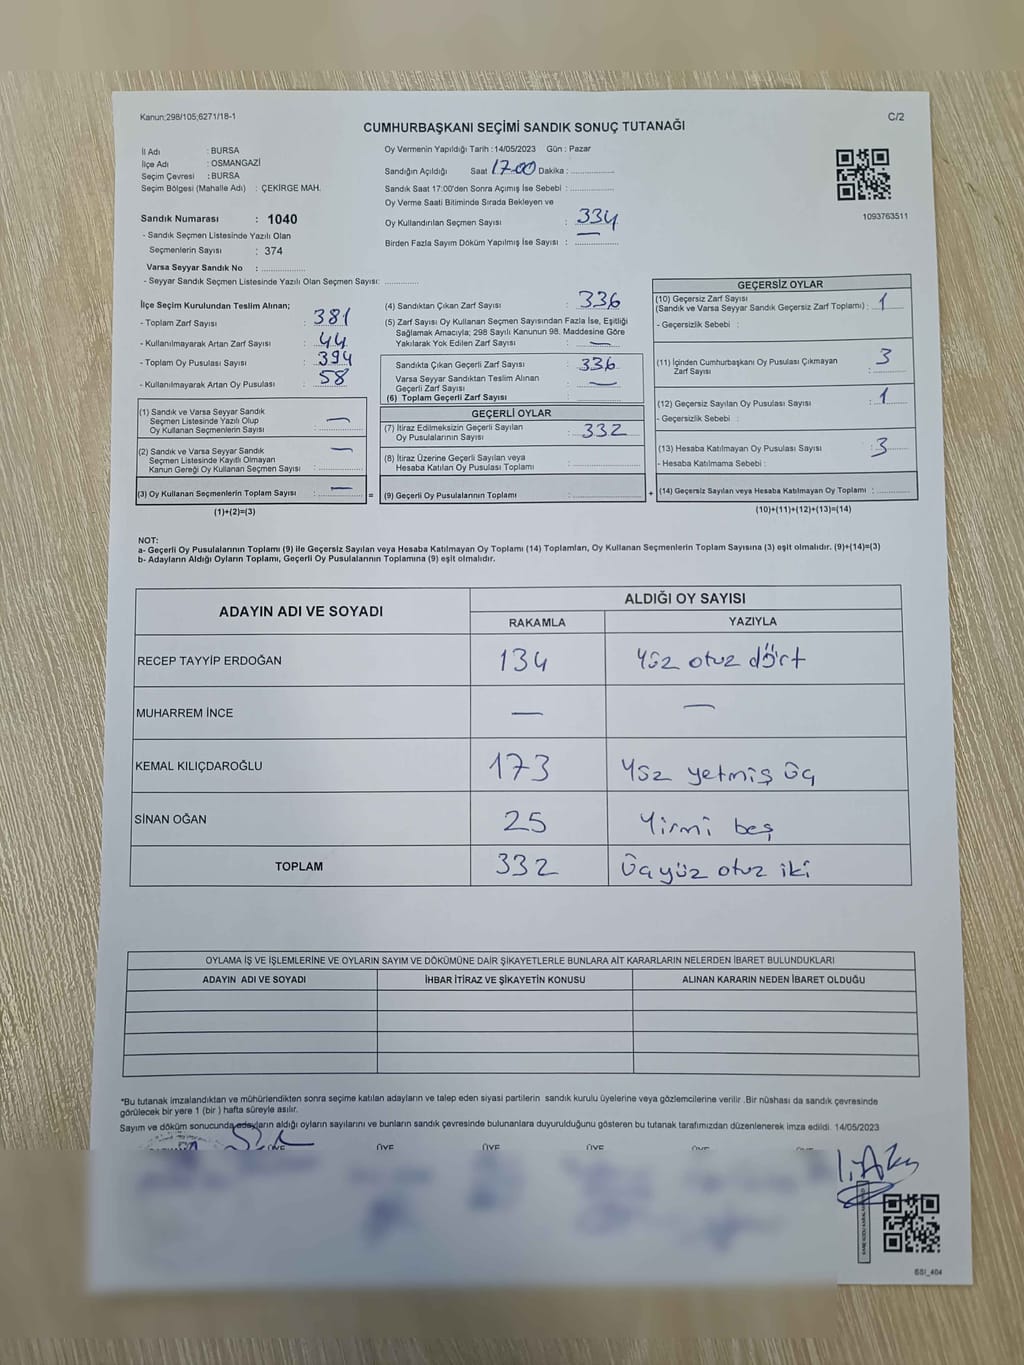 Kanun;298/105;6271/18-1
C/2
CUMHURBAŞKANI SEÇİMİ SANDIK SONUÇ TUTANAĞI
İl Adı : BURSA
İlçe Adı : OSMANGAZİ
Seçim Çevresi : BURSA
Seçim Bölgesi (Mahalle Adı) : ÇEKİRGE MAH.
Sandık Numarası : 1040
- Sandık Seçmen Listesinde Yazılı Olan
Seçmenlerin Sayısı : 374
Varsa Seyyar Sandık No : ............
- Seyyar Sandık Seçmen Listesinde Yazılı Olan Seçmen Sayısı: ............
Oy Vermenin Yapıldığı Tarih :14/05/2023 Gün : Pazar
Sandığın Açıldığı Saat 17:00 Dakika : ............
Sandık Saat 17:00'den Sonra Açımış İse Sebebi : ............
Oy Verme Saati Bitiminde Sırada Bekleyen ve
Oy Kullandırılan Seçmen Sayısı : 334
Birden Fazla Sayım Döküm Yapılmış İse Sayısı : —
1093763511
İlçe Seçim Kurulundan Teslim Alınan;
- Toplam Zarf Sayısı : 381
- Kullanılmayarak Artan Zarf Sayısı : 44
- Toplam Oy Pusulası Sayısı : 394
- Kullanılmayarak Artan Oy Pusulası : 58
(1) Sandık ve Varsa Seyyar Sandık
Seçmen Listesinde Yazılı Olup
Oy Kullanan Seçmenlerin Sayısı : —
(2) Sandık ve Varsa Seyyar Sandık
Seçmen Listesinde Kayıtlı Olmayan
Kanun Gereği Oy Kullanan Seçmen Sayısı : —
(3) Oy Kullanan Seçmenlerin Toplam Sayısı : — =
(1)+(2)=(3)
(4) Sandıktan Çıkan Zarf Sayısı : 336
(5) Zarf Sayısı Oy Kullanan Seçmen Sayısından Fazla İse, Eşitliği
Sağlamak Amacıyla; 298 Sayılı Kanunun 98. Maddesine Göre
Yakılarak Yok Edilen Zarf Sayısı : —
Sandıkta Çıkan Geçerli Zarf Sayısı : 336
Varsa Seyyar Sandıktan Teslim Alınan
Geçerli Zarf Sayısı : —
(6) Toplam Geçerli Zarf Sayısı :
GEÇERLİ OYLAR
(7) İtiraz Edilmeksizin Geçerli Sayılan
Oy Pusulalarının Sayısı : 332
(8) İtiraz Üzerine Geçerli Sayılan veya
Hesaba Katılan Oy Pusulası Toplamı : ............
(9) Geçerli Oy Pusulalarının Toplamı : ............ +
GEÇERSİZ OYLAR
(10) Geçersiz Zarf Sayısı
(Sandık ve Varsa Seyyar Sandık Geçersiz Zarf Toplamı) : 1
- Geçersizlik Sebebi :
(11) İçinden Cumhurbaşkanı Oy Pusulası Çıkmayan
Zarf Sayısı : 3
(12) Geçersiz Sayılan Oy Pusulası Sayısı : 1
- Geçersizlik Sebebi :
(13) Hesaba Katılmayan Oy Pusulası Sayısı : 3
- Hesaba Katılmama Sebebi :
(14) Geçersiz Sayılan veya Hesaba Katılmayan Oy Toplamı : ............
(10)+(11)+(12)+(13)=(14)
NOT:
a- Geçerli Oy Pusulalarının Toplamı (9) ile Geçersiz Sayılan veya Hesaba Katılmayan Oy Toplamı (14) Toplamları, Oy Kullanan Seçmenlerin Toplam Sayısına (3) eşit olmalıdır. (9)+(14)=(3)
b- Adayların Aldığı Oyların Toplamı, Geçerli Oy Pusulalarının Toplamına (9) eşit olmalıdır.
ADAYIN ADI VE SOYADI
ALDIĞI OY SAYISI
RAKAMLA YAZIYLA
RECEP TAYYİP ERDOĞAN 134 Yüz otuz dört
MUHARREM İNCE — —
KEMAL KILIÇDAROĞLU 173 Yüz yetmiş üç
SİNAN OĞAN 25 Yirmi beş
TOPLAM 332 Üçyüz otuz iki
OYLAMA İŞ VE İŞLEMLERİNE VE OYLARIN SAYIM VE DÖKÜMÜNE DAİR ŞİKAYETLERLE BUNLARA AİT KARARLARIN NELERDEN İBARET BULUNDUKLARI
ADAYIN ADI VE SOYADI İHBAR İTİRAZ VE ŞİKAYETİN KONUSU ALINAN KARARIN NEDEN İBARET OLDUĞU
*Bu tutanak imzalandıktan ve mühürlendikten sonra seçime katılan adayların ve talep eden siyasi partilerin sandık kurulu üyelerine veya gözlemcilerine verilir .Bir nüshası da sandık çevresinde
görülecek bir yere 1 (bir ) hafta süreyle asılır.
Sayım ve döküm sonucunda adayların aldığı oyların sayılarını ve bunların sandık çevresinde bulunanlara duyurulduğunu gösteren bu tutanak tarafımızdan düzenlenerek imza edildi. 14/05/2023
ÜYE ÜYE ÜYE ÜYE ÜYE
SSİ_404